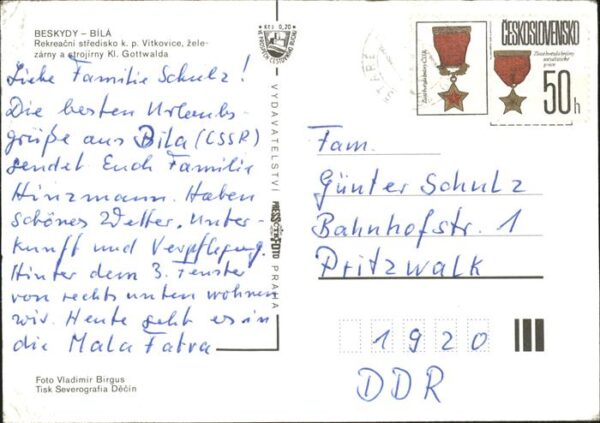 BESKYDY – BÍLÁ
Rekreační středisko k. p. Vítkovice, žele-
zárny a strojírny Kl. Gottwalda
Liebe Familie Schulz!
Die besten Urlaubs-
grüße aus Bila (CSSR)
sendet Euch Familie
Hinzmann. Haben
schönes Wetter, Unter-
kunft und Verpflegung.
Hinter dem 3. Fenster
von rechts unten wohnen
wir. Heute geht es in
die Mala Fatra
Foto Vladimír Birgus
Tisk Severografia Děčín
Kčs 0,20
VYDAVATELSTVÍ
PRESSFOTO
PRAHA
ČESKOSLOVENSKO
50h
Fam.
Günter Schulz
Bahnhofstr. 1
Pritzwalk
1920
DDR